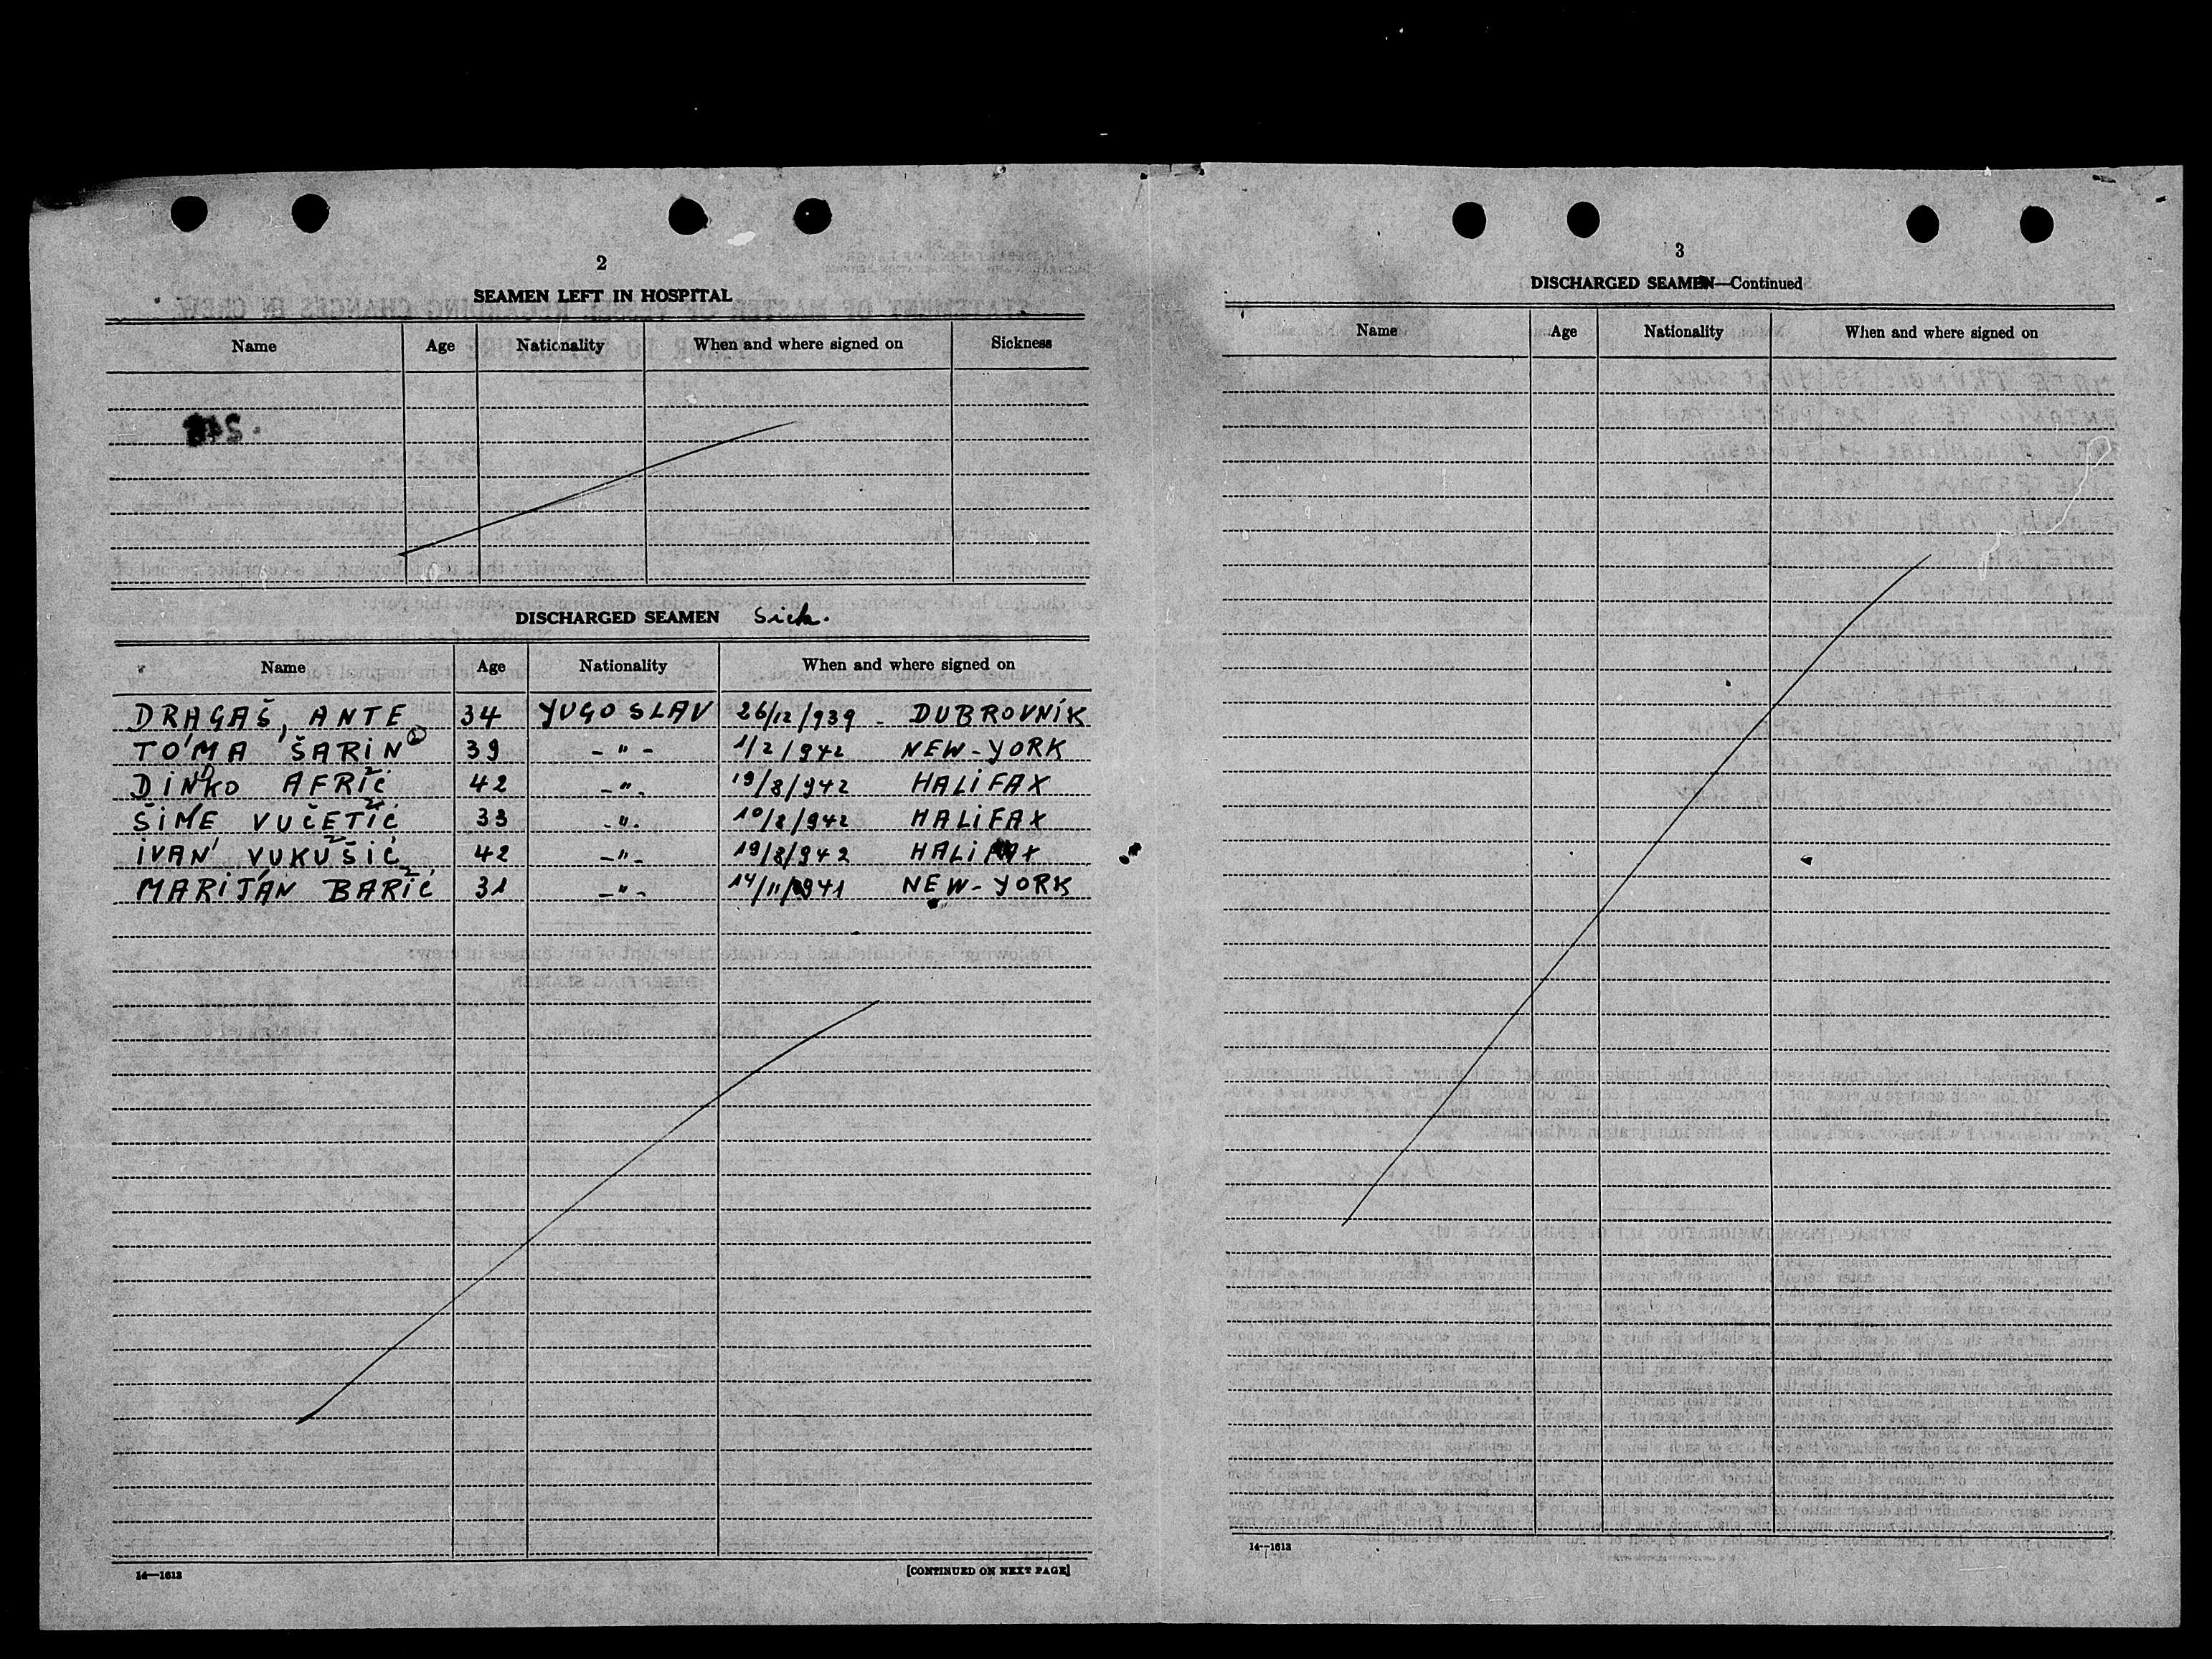 2
SEAMEN LEFT IN HOSPITAL
Name Age Nationality When and where signed on Sickness
DISCHARGED SEAMEN Sick.
Name Age Nationality When and where signed on
DRAGAŠ, ANTE 34 YUGOSLAV 26/12/939 - DUBROVNIK
TOMA ŠARIN 39 -"- 1/2/942 NEW-YORK
DINKO AFRIĆ 42 -"- 19/8/942 HALIFAX
ŠIME VUČETIĆ 33 -"- 10/8/942 HALIFAX
IVAN VUKUŠIĆ 42 -"- 19/8/942 HALIFAX
MARIJAN BARIĆ 31 -"- 14/11/941 NEW-YORK
14—1613 [CONTINUED ON NEXT PAGE]
3
DISCHARGED SEAMEN—Continued
Name Age Nationality When and where signed on
14—1613